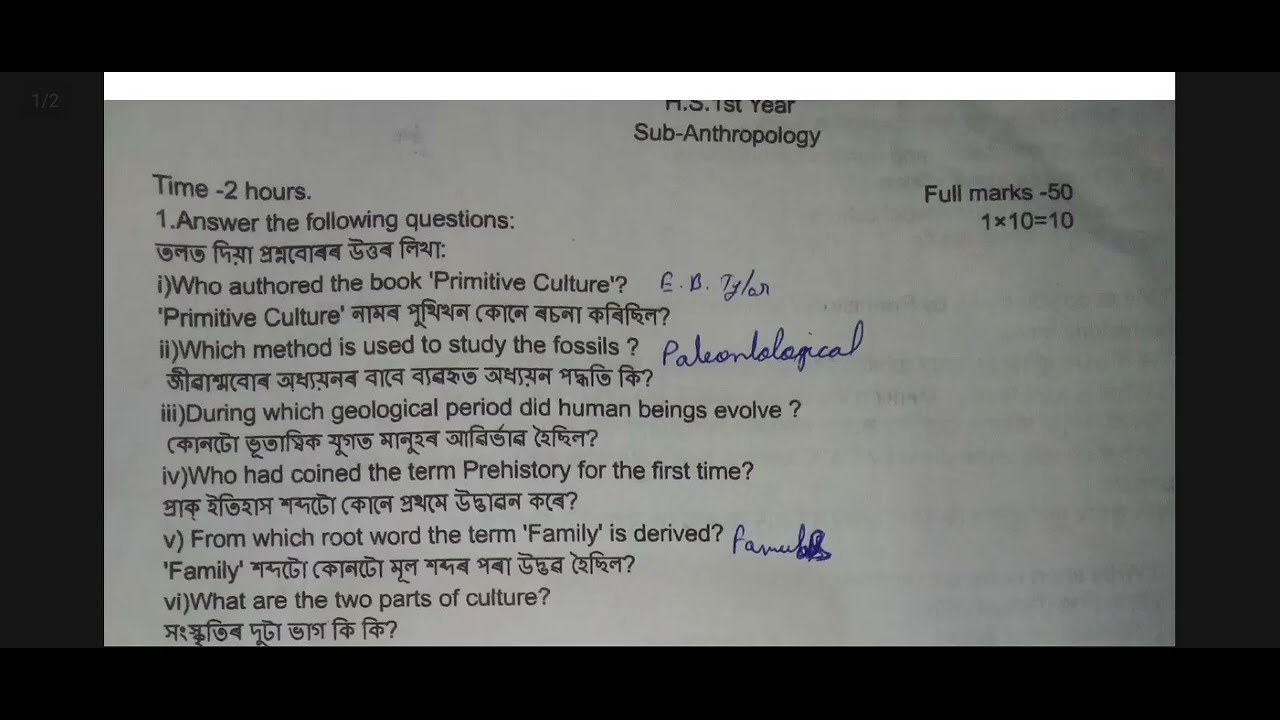 1/2
H.S.1st Year
Sub-Anthropology
Time -2 hours.
Full marks -50
1.Answer the following questions:
1×10=10
তলত দিয়া প্ৰশ্নবোৰৰ উত্তৰ লিখা:
i)Who authored the book 'Primitive Culture'? E. B. Tylor
'Primitive Culture' নামৰ পুথিখন কোনে ৰচনা কৰিছিল?
ii)Which method is used to study the fossils ? Paleontological
জীৱাশ্মবোৰ অধ্যয়নৰ বাবে ব্যৱহৃত অধ্যয়ন পদ্ধতি কি?
iii)During which geological period did human beings evolve ?
কোনটো ভূতাত্বিক যুগত মানুহৰ আৱিৰ্ভাৱ হৈছিল?
iv)Who had coined the term Prehistory for the first time?
প্ৰাক্ ইতিহাস শব্দটো কোনে প্ৰথমে উদ্ভাৱন কৰে?
v) From which root word the term 'Family' is derived?
'Family' শব্দটো কোনটো মূল শব্দৰ পৰা উদ্ভৱ হৈছিল?
vi)What are the two parts of culture?
সংস্কৃতিৰ দুটা ভাগ কি কি?